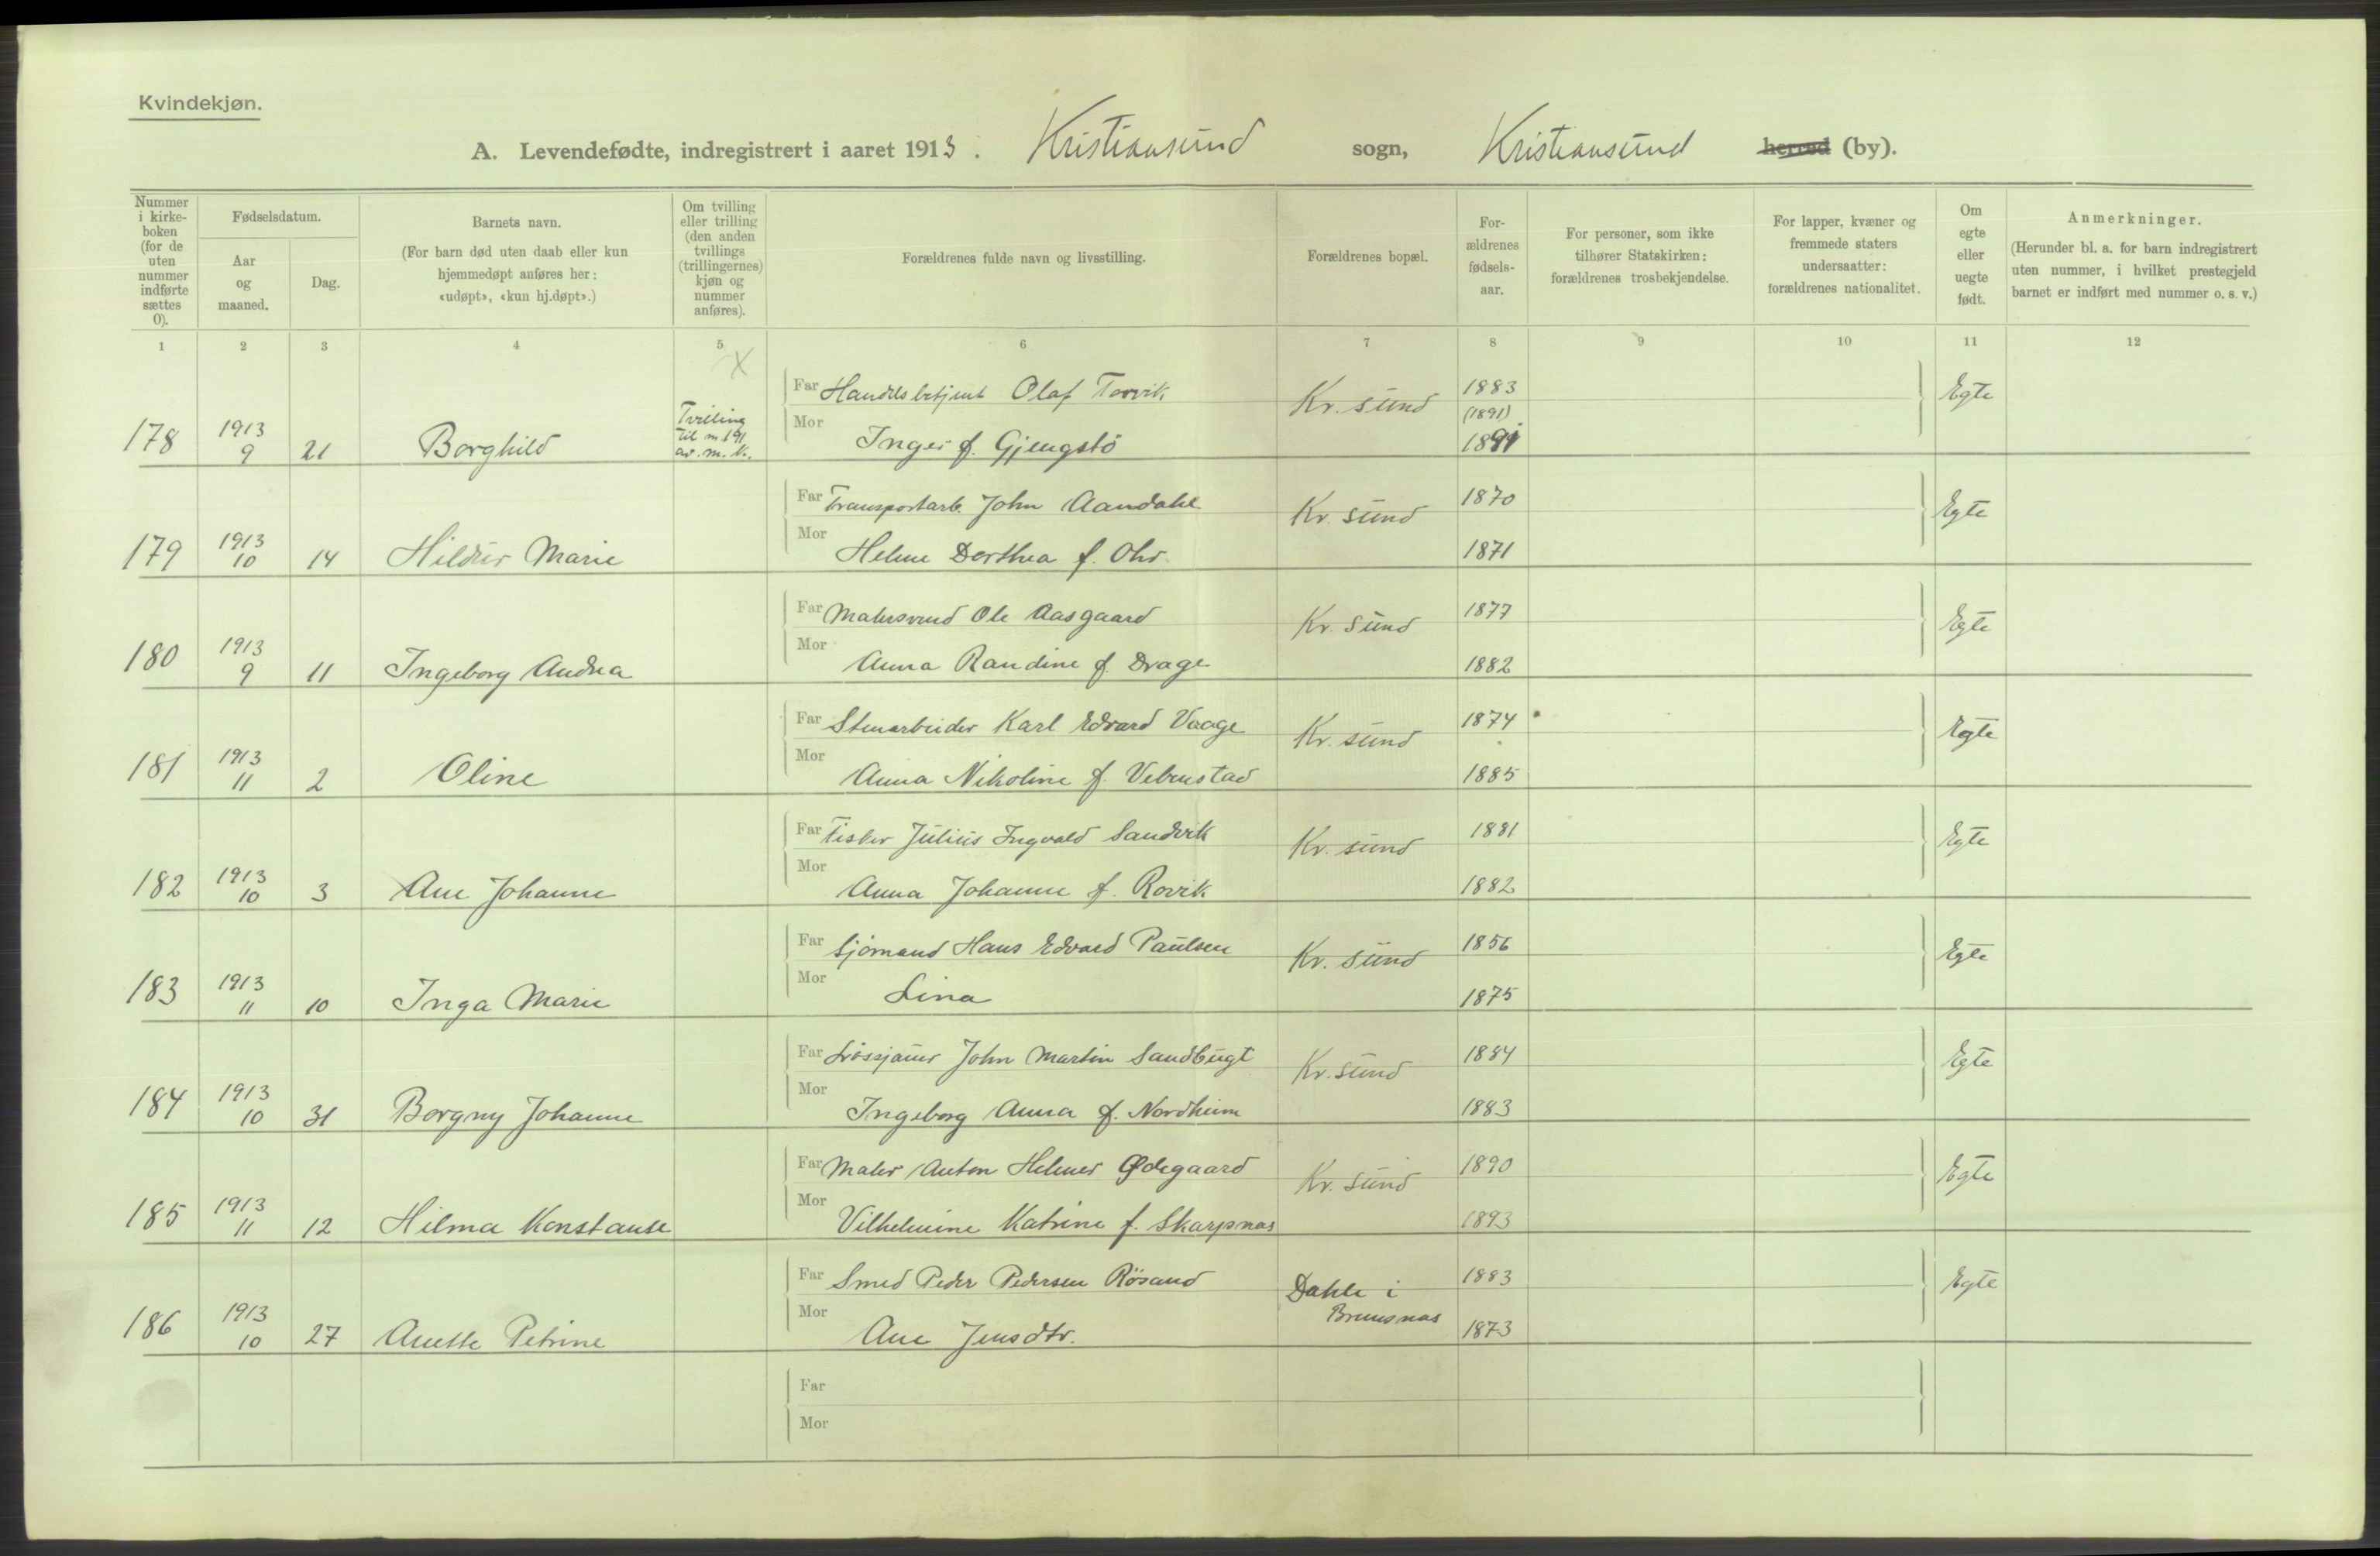 Kvindekjøn.
A. Levendefødte, indregistrert i aaret 1913. Kristiansund sogn, Kristiansund herred (by).
Nummer i kirke-boken (for de uten nummer indførte sættes 0).
Fødselsdatum.
Aar og maaned.
Dag.
Barnets navn.
(For barn død uten daab eller kun hjemmedøpt anføres her: «udøpt», «kun hj.døpt».)
Om tvilling eller trilling (den anden tvillings (trillingernes) kjøn og nummer anføres).
Forældrenes fulde navn og livsstilling.
Forældrenes bopæl.
For-ældrenes fødsels-aar.
For personer, som ikke tilhører Statskirken: forældrenes trosbekjendelse.
For lapper, kvæner og fremmede staters undersaatter: forældrenes nationalitet.
Om egte eller uegte født.
Anmerkninger.
(Herunder bl. a. for barn indregistrert uten nummer, i hvilket prestegjeld barnet er indført med nummer o. s. v.)
1 2 3 4 5 6 7 8 9 10 11 12
X
Far Handelsbetjent Olaf Torvik Kr. sund 1883 Egte
(1891)
178 1913 9 21 Borghild Tvilling til m 191 av m. k. Mor Inger f. Gjengstö 1891
Far Transportarb. John Aandahl Kr. sund 1870 Egte
179 1913 10 14 Hildur Marie Mor Helene Dorthea f. Ohr. 1871
Far Malersvend Ole Aasgaard Kr. sund 1877 Egte
180 1913 9 11 Ingeborg Andrea Mor Anna Randine f. Drage 1882
Far Stenarbeider Karl Edvard Vaage Kr. sund 1874 Egte
181 1913 11 2 Oline Mor Anna Nikoline f. Vebenstad 1885
Far Fisker Julius Ingvald Sandvik Kr. sund 1881 Egte
182 1913 10 3 Ane Johanne Mor Anna Johanne f. Rovik 1882
Far Sjömand Hans Edvard Paulsen Kr. sund 1856 Egte
183 1913 11 10 Inga Marie Mor Lina 1875
Far Lössjauer John Martin Sandbugt Kr. sund 1884 Egte
184 1913 10 31 Borgny Johanne Mor Ingeborg Anna f. Nordheim 1883
Far Maler Anton Helmer Ødegaard Kr. sund 1890 Egte
185 1913 11 12 Hilma Konstanse Mor Vilhelmine Katrine f. Skarpnas 1893
Far Smed Peder Pedersen Rösand Dahle i Bremsnas 1883 Egte
186 1913 10 27 Anette Petrine Mor Ane Jensdtr. 1873
Far
Mor